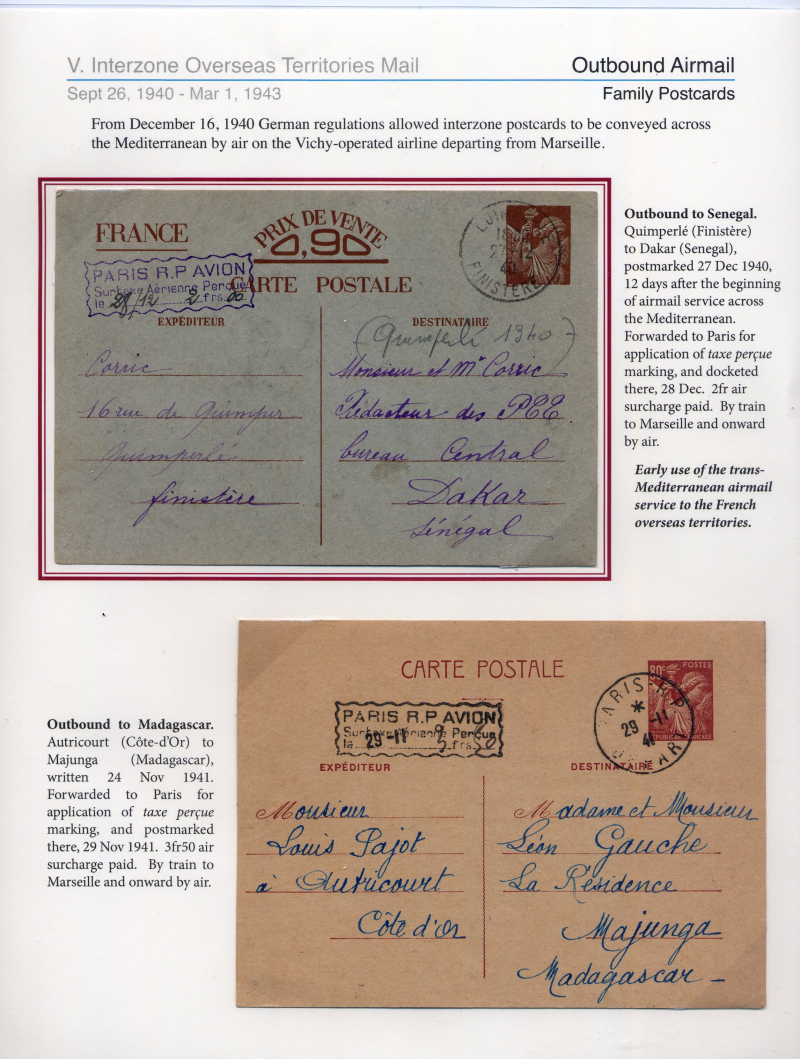 V. Interzone Overseas Territories Mail
Outbound Airmail
Sept 26, 1940 - Mar 1, 1943
Family Postcards
From December 16, 1940 German regulations allowed interzone postcards to be conveyed across
the Mediterranean by air on the Vichy-operated airline departing from Marseille.
FRANCE
PRIX DE VENTE
0,90
CARTE POSTALE
PARIS R.P AVION
Surtaxe Aérienne Perçue
le 28/12 2 frs 00
27 12
40
FINISTÈRE
EXPÉDITEUR
DESTINATAIRE
(Quimperlé 1340)
Corric
16 rue de Quimper
Quimperlé
finistère
Monsieur et Mme Corric
Rédacteur des PEE
bureau Central
Dakar
Sénégal
Outbound to Senegal.
Quimperlé (Finistère)
to Dakar (Senegal),
postmarked 27 Dec 1940,
12 days after the beginning
of airmail service across
the Mediterranean.
Forwarded to Paris for
application of taxe perçue
marking, and docketed
there, 28 Dec. 2fr air
surcharge paid. By train
to Marseille and onward
by air.
Early use of the trans-
Mediterranean airmail
service to the French
overseas territories.
Outbound to Madagascar.
Autricourt (Côte-d'Or) to
Majunga (Madagascar),
written 24 Nov 1941.
Forwarded to Paris for
application of taxe perçue
marking, and postmarked
there, 29 Nov 1941. 3fr50 air
surcharge paid. By train to
Marseille and onward by air.
CARTE POSTALE
80c POSTES
RÉPUBLIQUE FRANÇAISE
PARIS R.P
29 -11
41
DÉPART
PARIS R.P AVION
Surtaxe Aérienne Perçue
le 29-11 3 frs 50
EXPÉDITEUR
DESTINATAIRE
Monsieur
Louis Pajot
à Autricourt
Côte d'Or
Madame et Monsieur
Léon Gauche
La Résidence
Majunga
Madagascar -